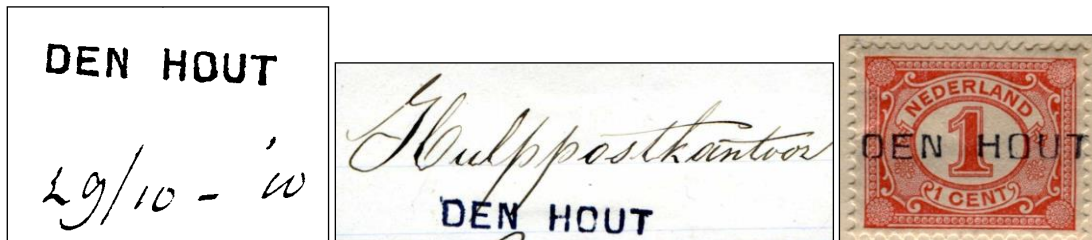 DEN HOUT
29/10 - '10
Hulppostkantoor
DEN HOUT
NEDERLAND
1
DEN HOUT
1 CENT